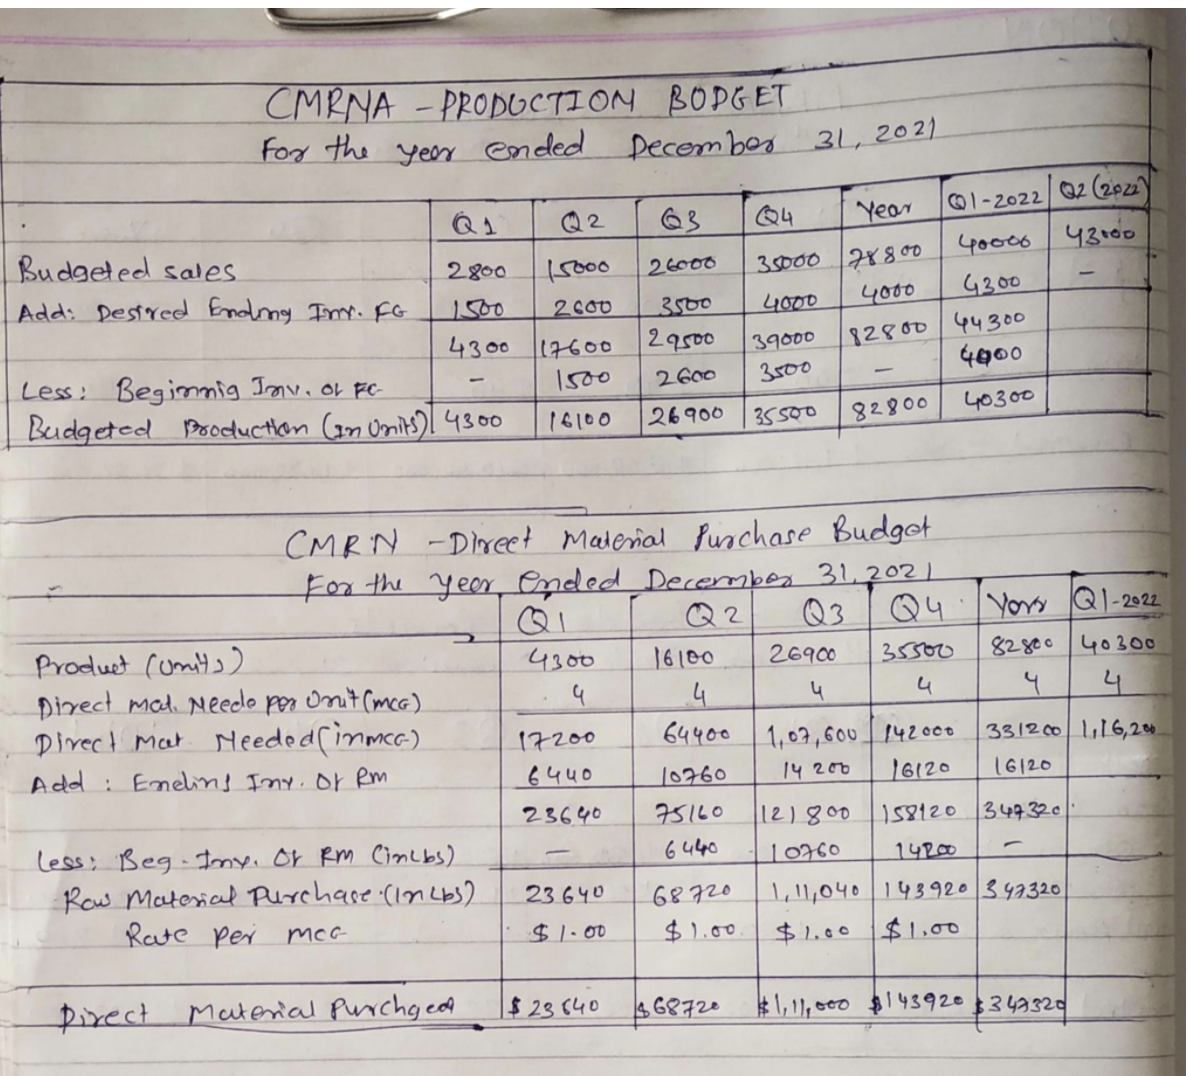 CMRNA - PRODUCTION BODGET
For the year ended December 31, 2021
Q1 Q2 Q3 Q4 Year Q1-2022 Q2 (2022)
Budgeted sales 2800 15000 26000 35000 78800 40000 43000
Add: Desired Ending Inv. FG 1500 2600 3500 4000 4000 4300 -
4300 17600 29500 39000 82800 44300
Less: Beginnig Inv. of FG - 1500 2600 3500 - 4000
Budgeted Production (In Units) 4300 16100 26900 35500 82800 40300
CMRN - Direct Material Purchase Budget
For the year Ended December 31, 2021
Q1 Q2 Q3 Q4 Q1-2022
Product (units) 4300 16100 26900 35500 82800 40300
Direct mat. Neede per Unit (mcg) 4 4 4 4 4 4
Direct mat. Needed (in mcg) 17200 64400 1,07,600 142000 331200 1,16,200
Add : Ending Inv. Of Rm 6440 10760 14200 16120 16120
23640 75160 121800 158120 347320
Less: Beg. Inv. Of RM (in Lbs) - 6440 10760 14200 -
Raw Material Purchase (In Lbs) 23640 68720 1,11,040 143920 347320
Rate per mcg $1.00 $1.00 $1.00 $1.00
Direct Material Purchged $23640 $68720 $1,11,000 $143920 $347320